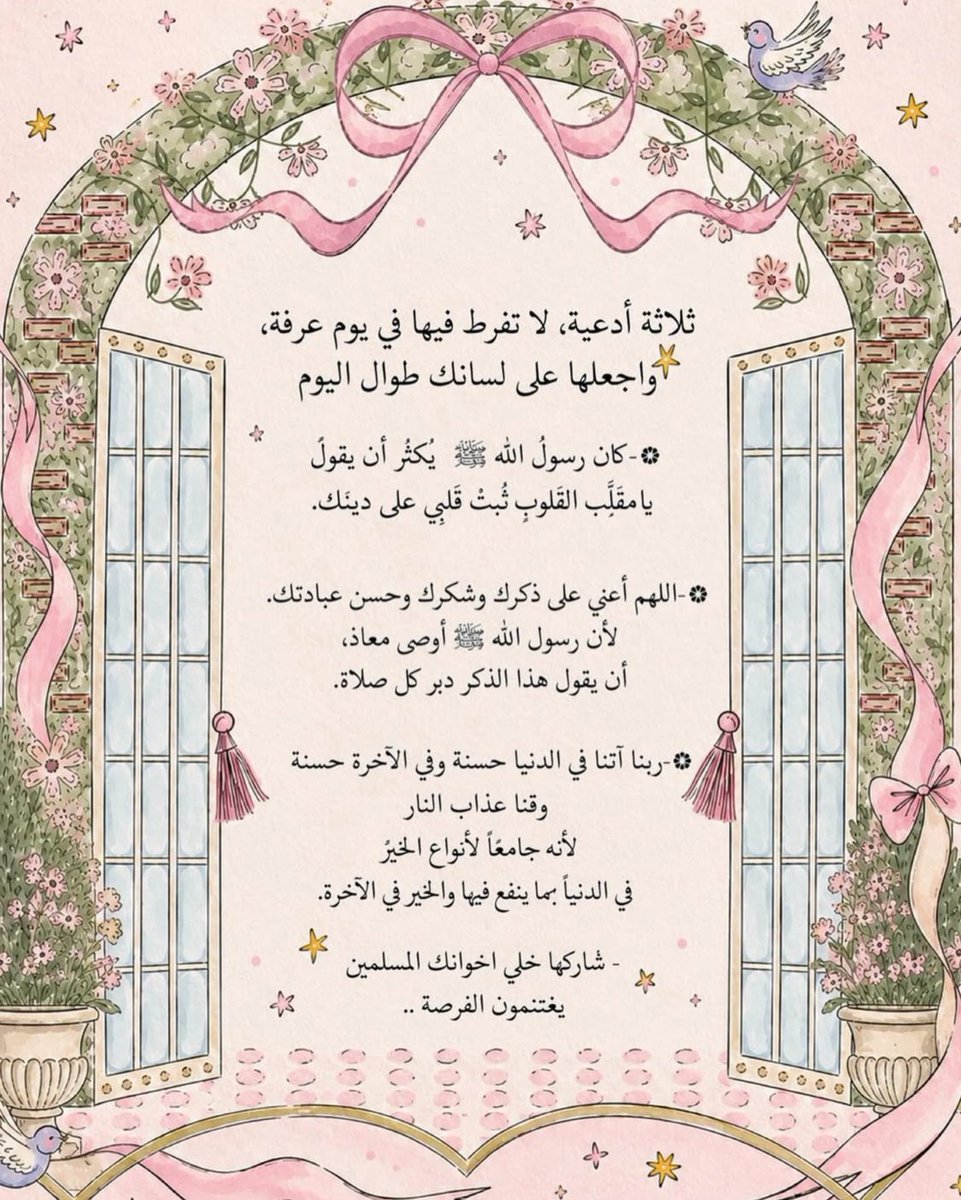 ثلاثة أدعية، لا تفرط فيها في يوم عرفة،
واجعلها على لسانك طوال اليوم
❁-كان رسولُ الله ﷺ يُكثُر أن يقولً
يامقَلَِّب القَلوبٍ ثُبتْ قَلبِي على دينَك.
❁-اللهم أعني على ذكرك وشكرك وحسن عبادتك.
لأن رسول الله ﷺ أوصى معاذ،
أن يقول هذا الذكر دبر كل صلاة.
❁-ربنا آتنا في الدنيا حسنة وفي الآخرة حسنة
وقنا عذاب النار
لأنه جامعًا لأنواع الخيرُ
في الدنياً بما ينفع فيها والخير في الآخرة.
- شاركها خلي اخوانك المسلمين
يغتنمون الفرصة ..